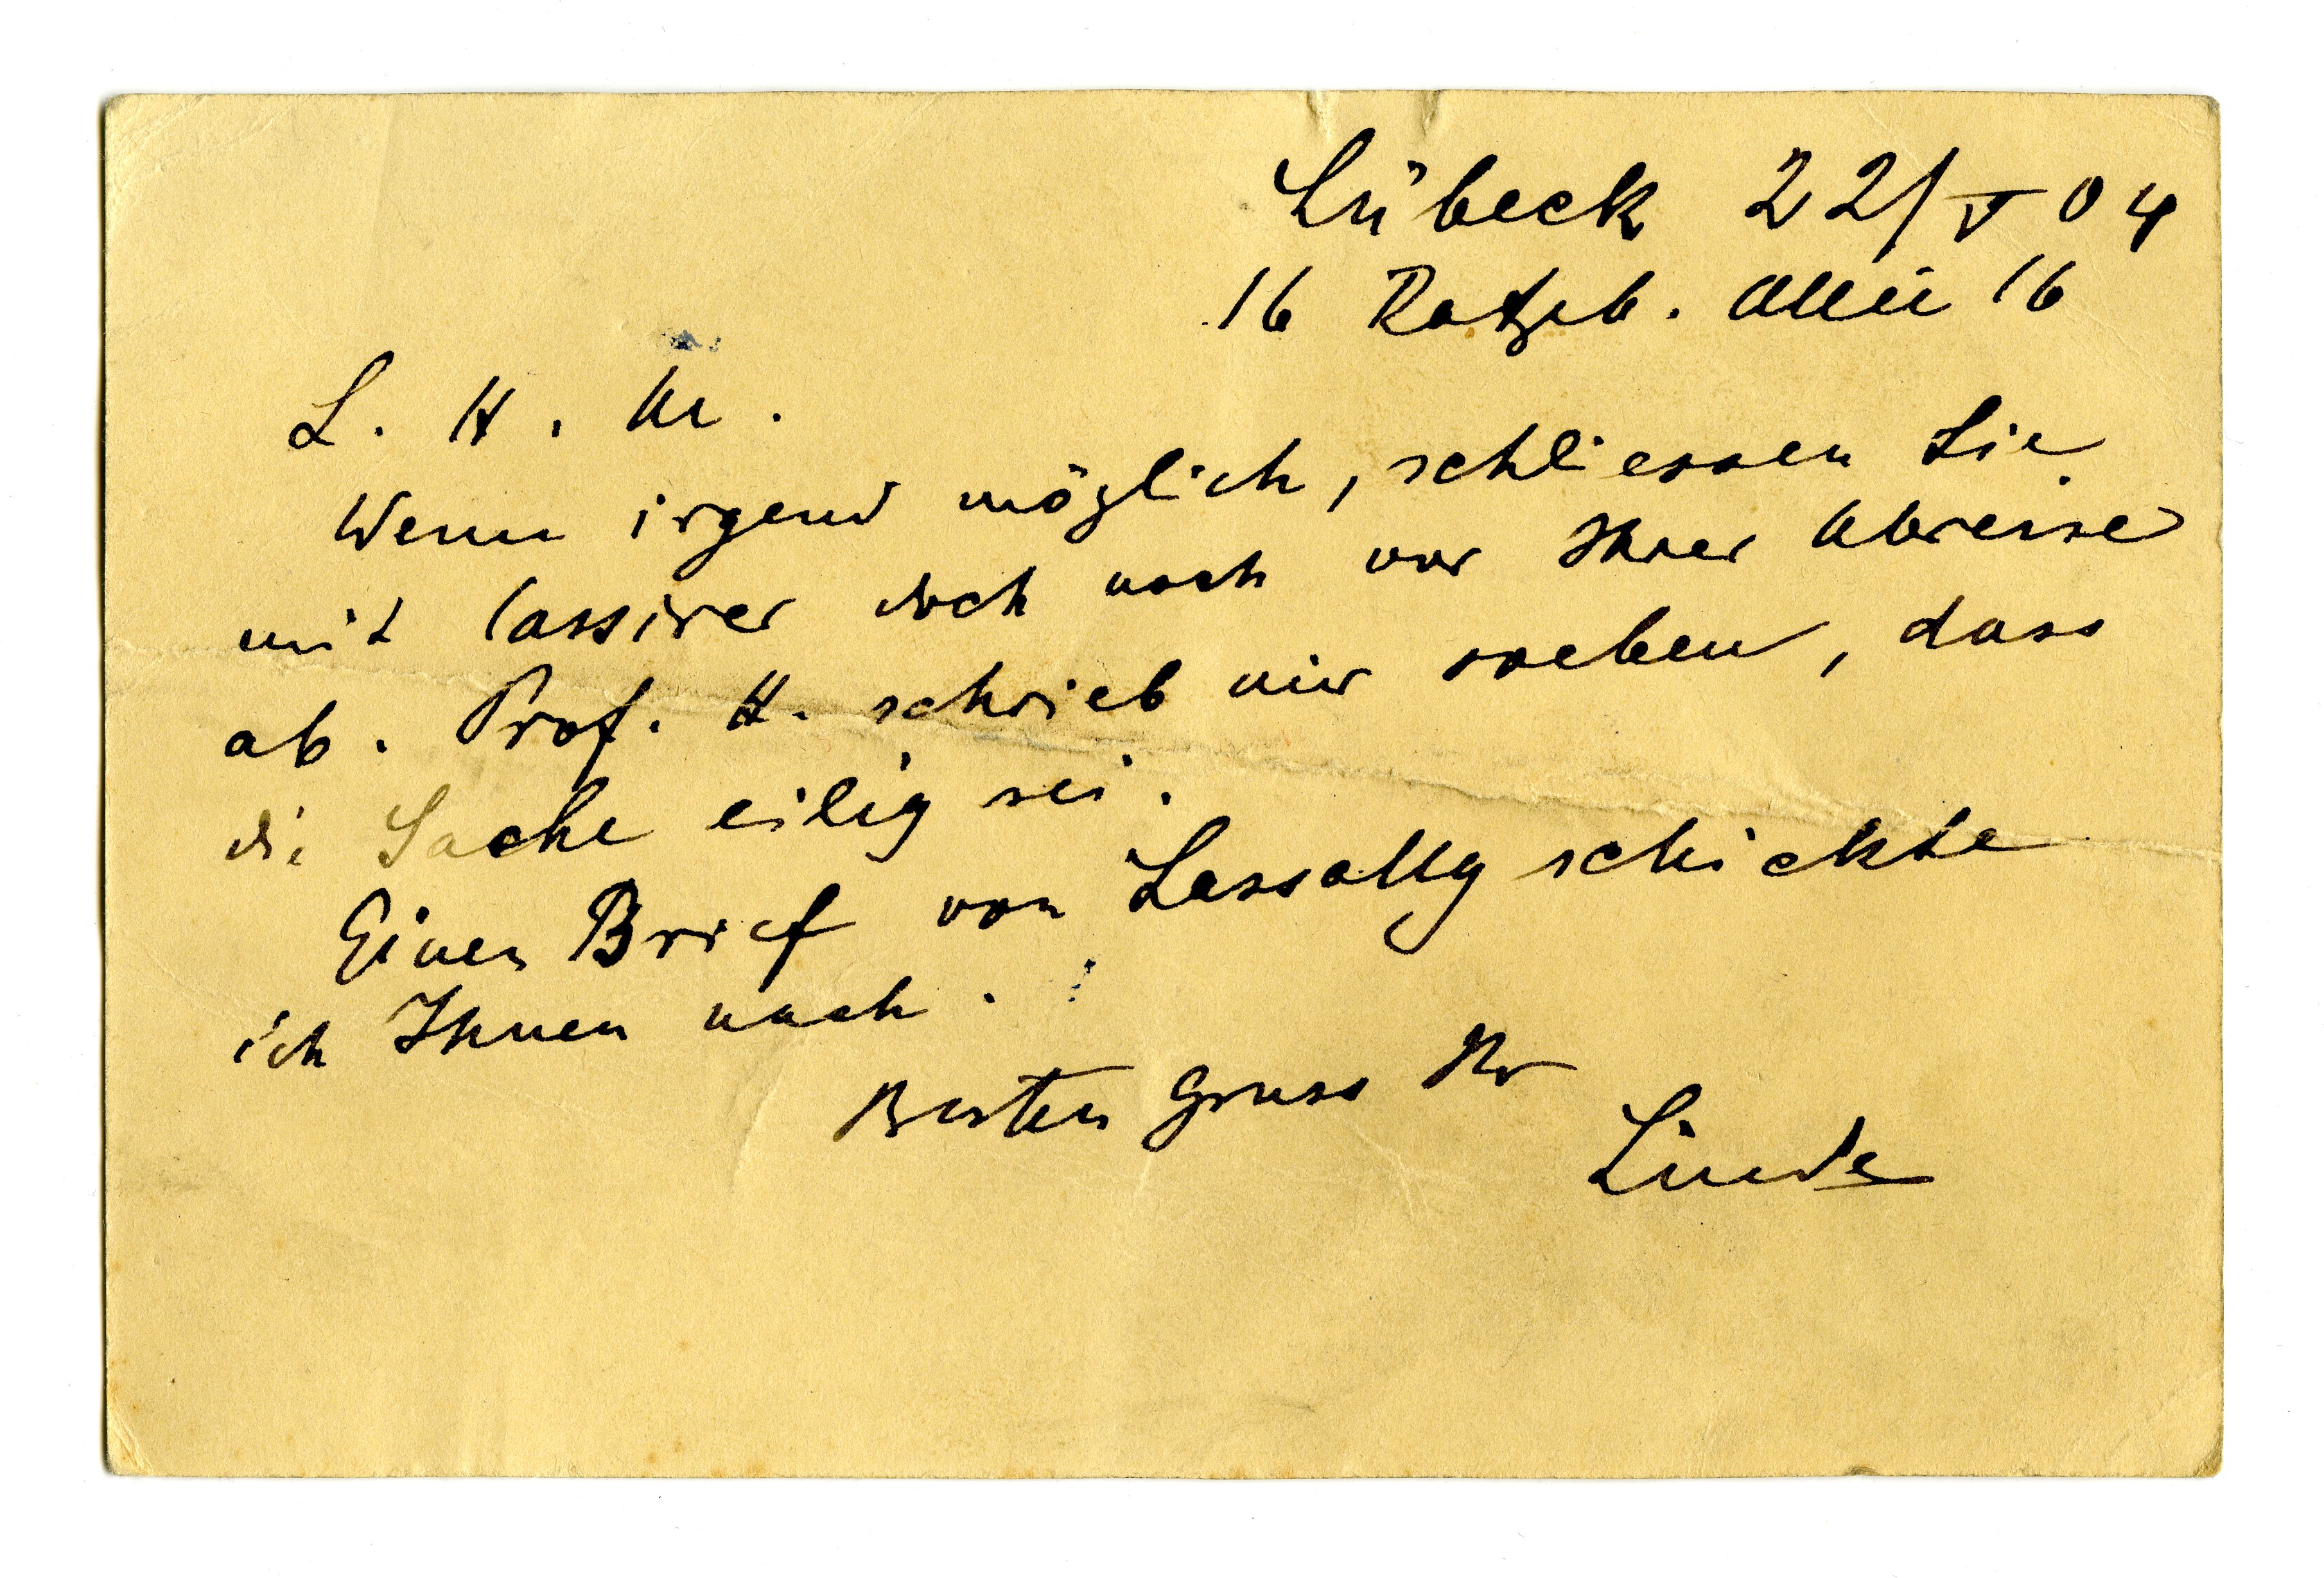 Lübeck 22/V 04
16 Ratzeb. Allee 16
L. H. M.
Wenn irgend möglich, schliessen Sie
mit Cassirer doch noch vor Ihrer Abreise
ab. Prof. H. schrieb mir soeben, dass
die Sache eilig sei.
Einen Brief von Lassally schickte
ich Ihnen nach.
Besten Gruss Ihr
Linde